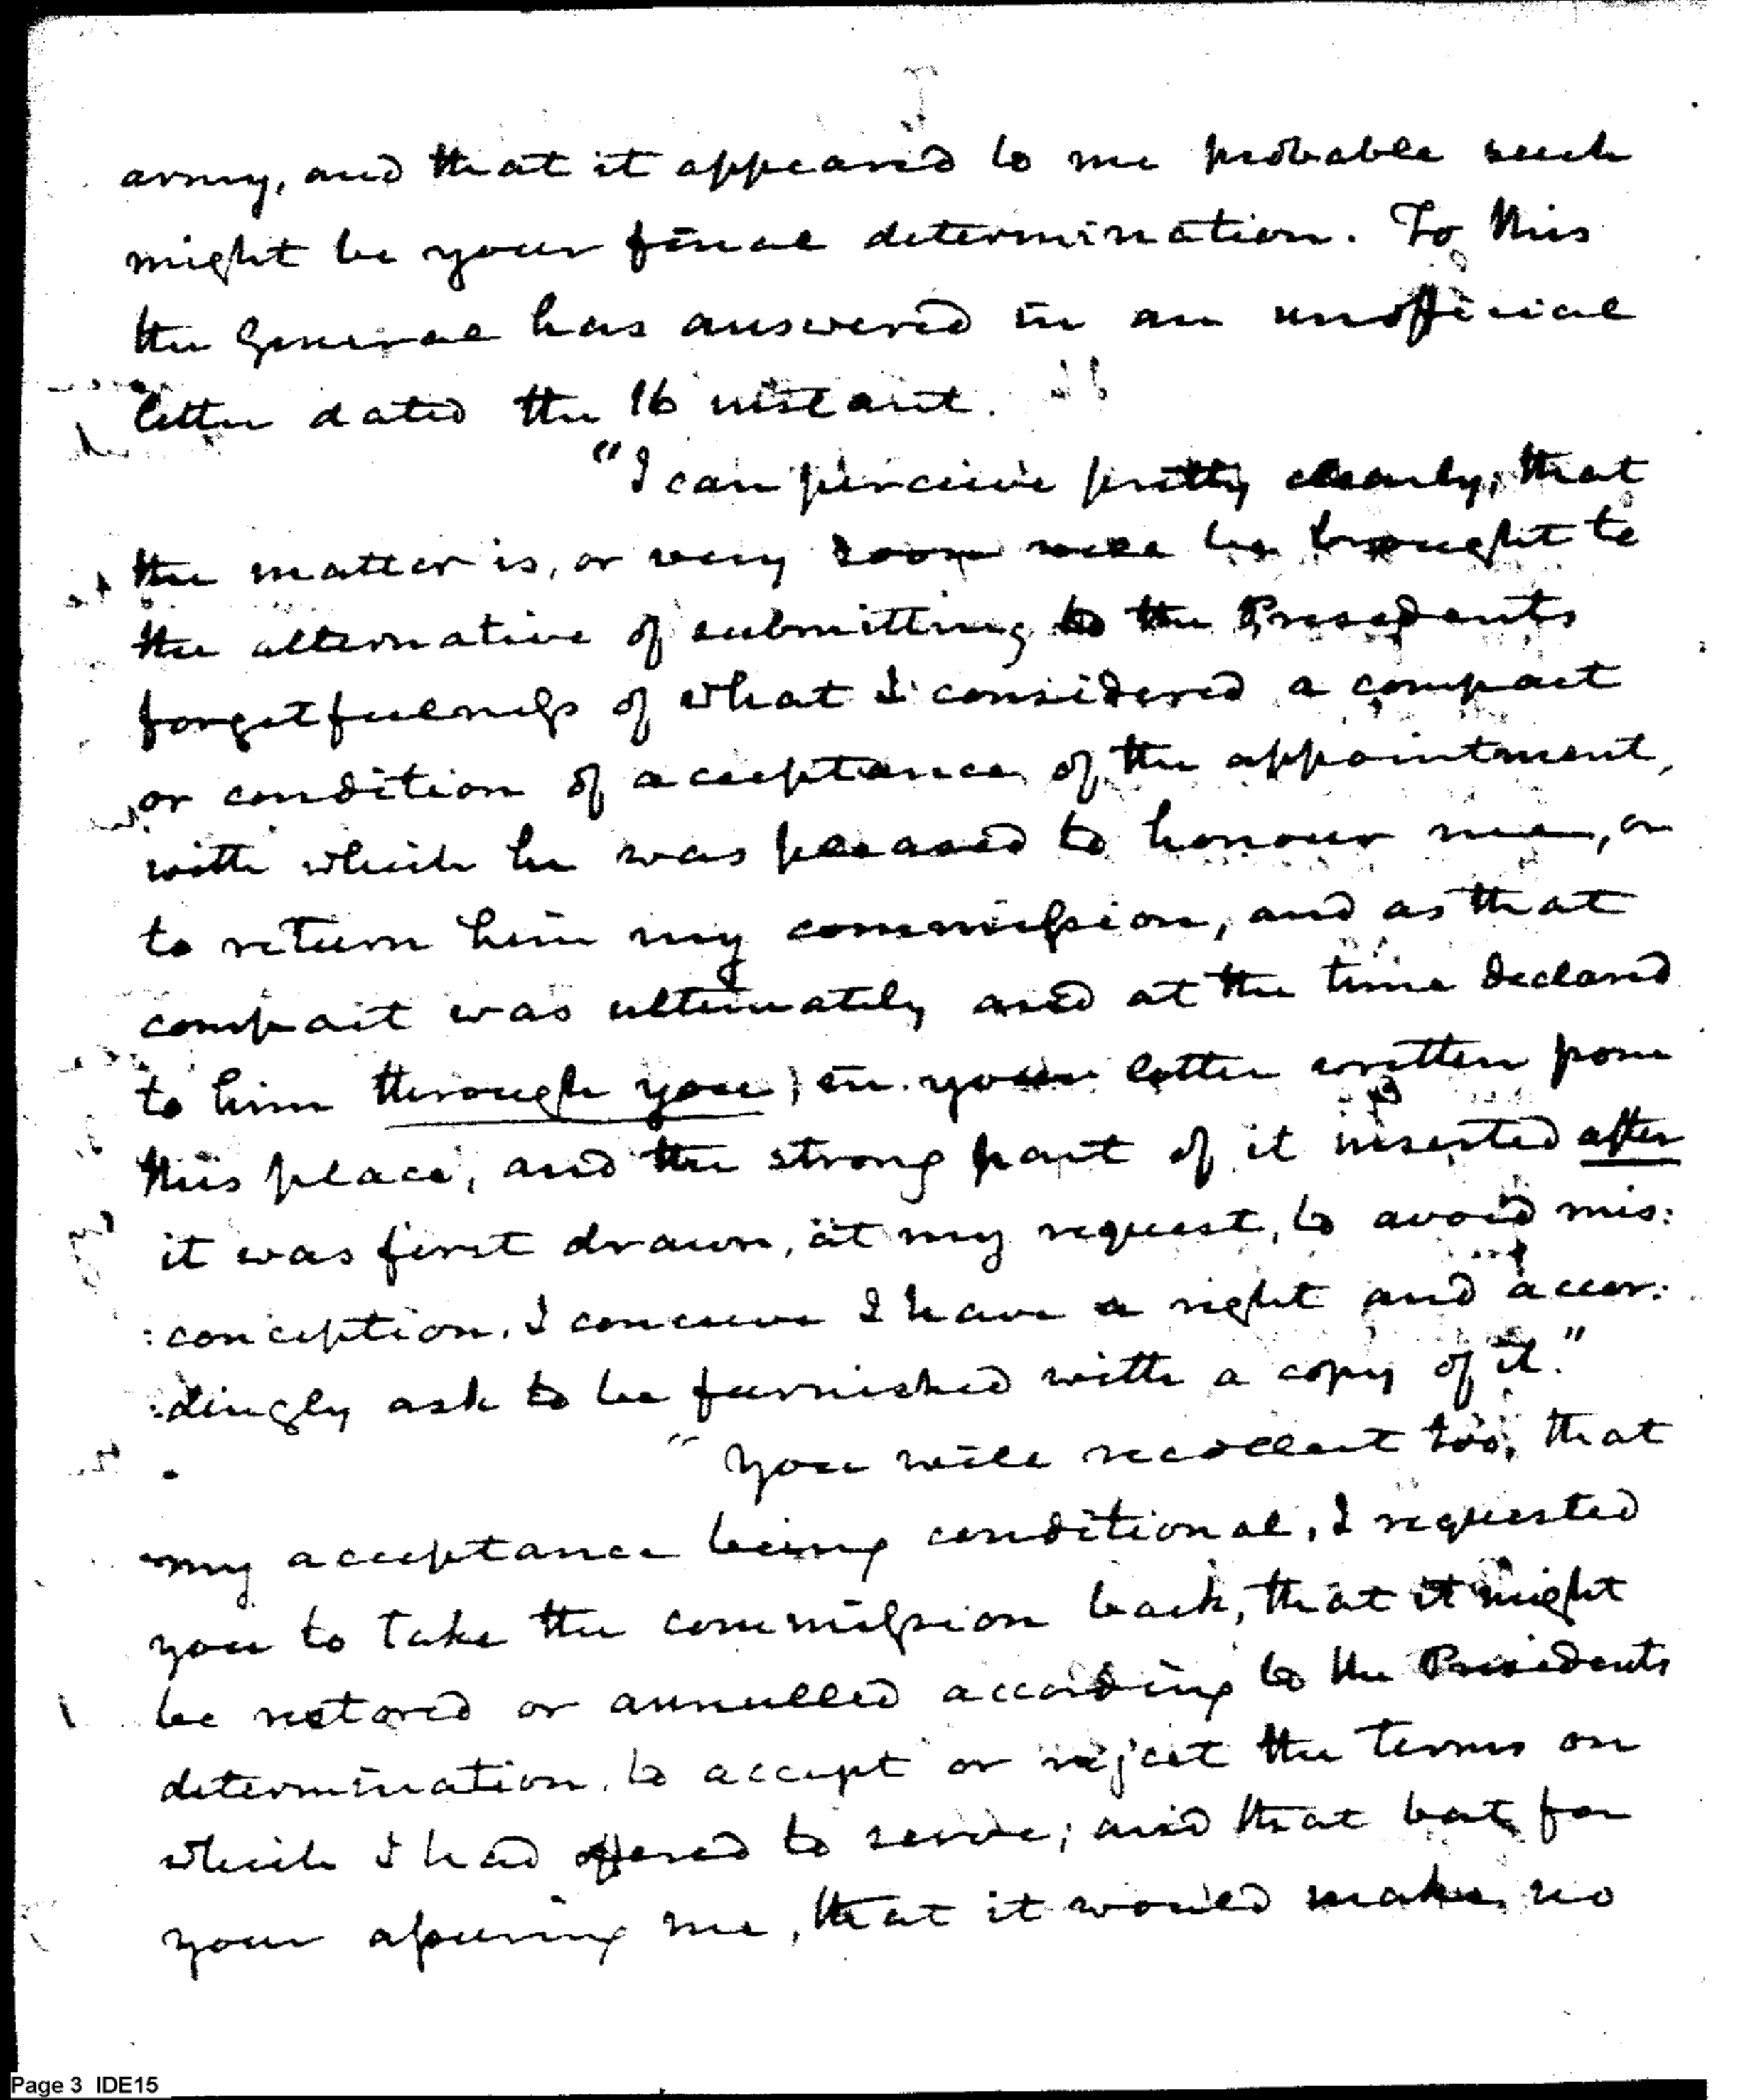 army, and that it appeared to me probable such
might be your final determination. To this
the General has answered in an unofficial
letter dated the 16 instant.
"I can perceive pretty clearly, that
the matter is, or very soon will be brought to
the alternative of submitting to the Presidents
forgetfulness of what I considered a compact
or condition of acceptance of the appointment,
with which he was pleased to honour me, or
to return him my commission, and as that
compact was ultimately and at the time declared
to him through you, in your letter written from
this place, and the strong part of it inserted after
it was first drawn, at my request, to avoid mis:
:conception. I conceive I have a right and accor:
:dingly ask to be furnished with a copy of it."
"You will recollect too, that
my acceptance being conditional, I requested
you to take the commission back, that it might
be restored or annulled according to the Presidents
determination, to accept or reject the terms on
which I had offered to serve; and that but for
your assuring me, that it would make no
Page 3 IDE15